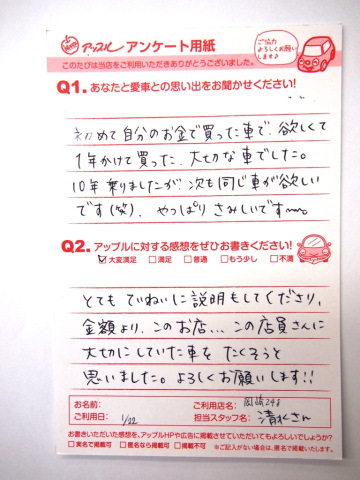 アップル アンケート用紙
ご協力
よろしくお願い
します♪
このたびは当店をご利用いただきありがとうございました。
Q1. あなたと愛車との思い出をお聞かせください!
初めて自分のお金で買った車で、欲しくて
1年かけて買った、大切な車でした。
10年乗りましたが、次も同じ車が欲しい
です(笑)、やっぱりさみしいです〜。
Q2. アップルに対する感想をぜひお書きください!
☑大変満足 □満足 □普通 □もう少し □不満
とてもていねいに説明もしてくださり、
金額より、このお店... この店員さんに
大切にしていた車をたくそうと
思いました。よろしくお願いします!!
お名前:
ご利用店名: 岡崎248
ご利用日: 1/22
担当スタッフ名: 清水さん
お書きいただいた感想を、アップルHPや広告に掲載させていただいてもよろしいでしょうか?
□実名で掲載可 □匿名なら掲載可 □掲載不可 ※ご記入がない場合は、匿名で掲載いたします。